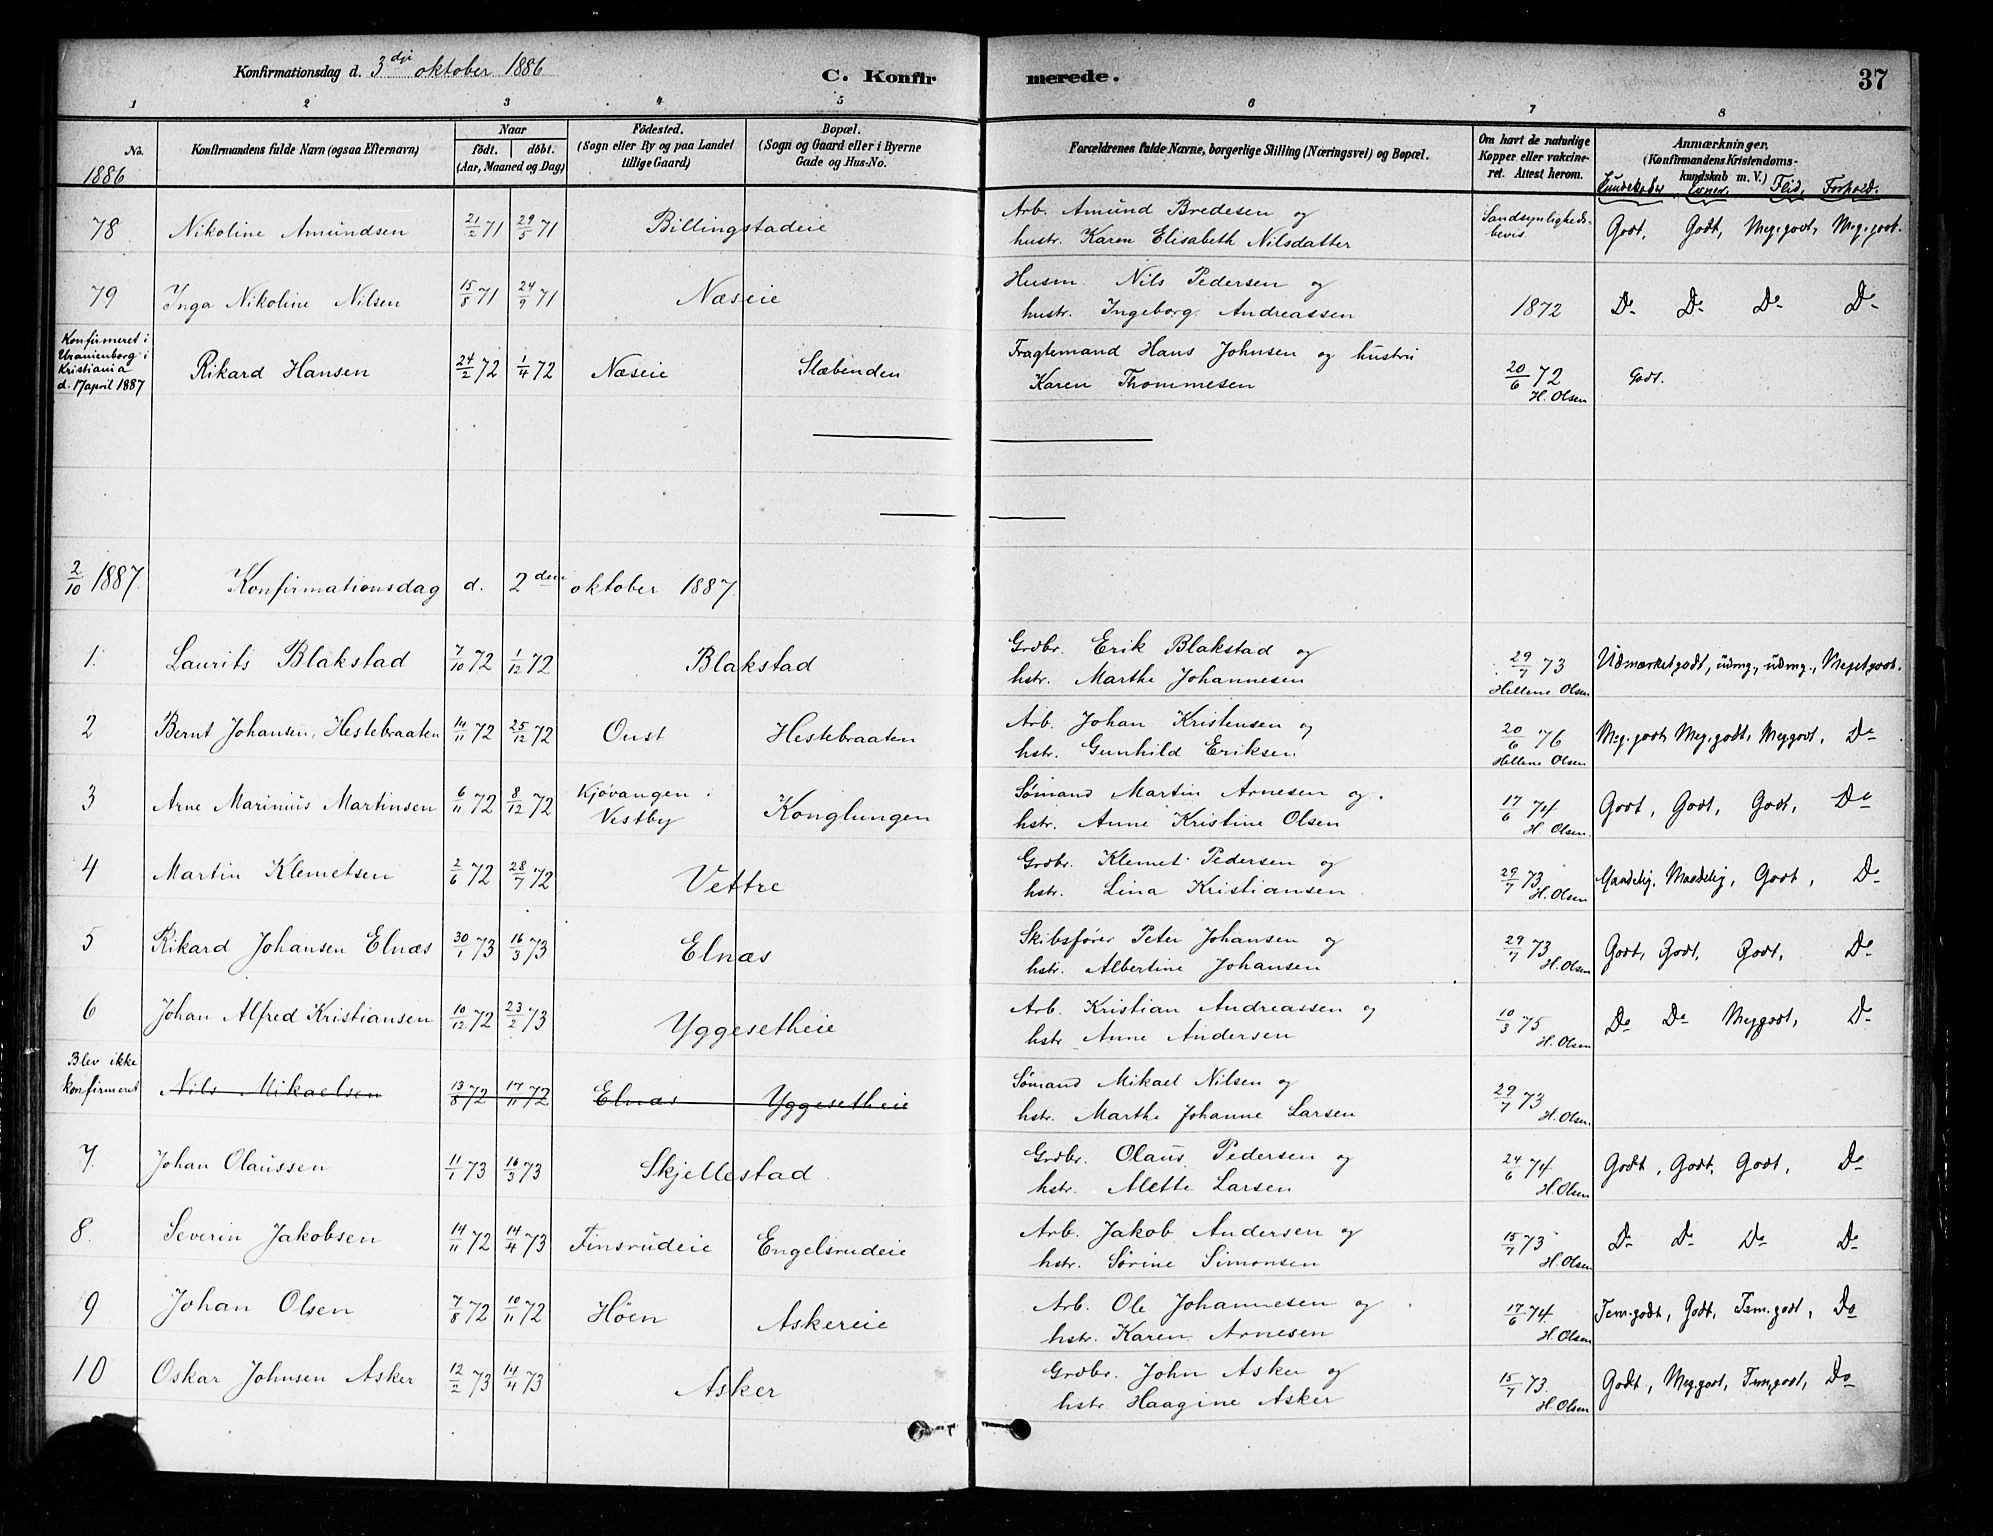 Konfirmationsdag d. 3dje oktober 1886 C. Konfirmerede. 37
1 2 3 4 5 6 7 8
No. Konfirmandens fulde Navn (ogsaa Efternavn) Naar født. døbt. (Aar, Maaned og Dag) Fødested. (Sogn eller By og paa Landet tillige Gaard) Bopæl. (Sogn og Gaard eller i Byerne Gade og Hus-No. Forældrenes fulde Navne, borgerlige Stilling (Næringsvei) og Bopæl. Om havt de naturlige Kopper eller vakcineret. Attest herom. Anmærkninger. (Konfirmandens Kristendomskundskab m. V.)
1886 Kundskaber Evner, Flid, Forhold.
78 Nikoline Amundsen 21/2 71 29/5 71 Billingstadeie Arb. Amund Bredesen og Sandsynligheds-
hustr. Karen Elisabeth Nilsdatter bevis. Godt, Godt, Meg.godt, Meg.godt.
79 Inga Nikoline Nilsen 15/8 71 24/9 71 Næseie Husm. Nils Pedersen og
hustr. Ingeborg Andreassen 1872 Do Do Do Do
Konfirmeret i
Uranienborg i
Kristiania
d. 17 april 1887
Rikard Hansen 24/2 72 1/4 72 Næseie Slæbenden Fragtemand Hans Johnsen og hustru
Karen Thommesen 20/6 72 Godt.
H. Olsen
2/10 1887. Konfirmationsdag d. 2den oktober 1887.
1. Laurits Blakstad 7/10 72 1/12 72 Blakstad Grdbr. Erik Blakstad og
hstr. Marthe Johannesen 29/7 73 Udmærketgodt, udmg., udmg., Megetgodt.
Hellene Olsen
2 Bernt Johansen, Hestebraaten 14/11 72 25/12 72 Oust Hestebraaten Arb. Johan Kristensen og
hstr. Gunhild Eriksen 20/6 76 Meg.godt, Meg.godt, Meggodt, Do
Hellene Olsen
3 Arne Marinius Martinsen 6/11 72 8/12 72 Kjøvangen Vestby Konglungen Sømand Martin Arnesen og
hstr. Anne Kristine Olsen 17/6 74 Godt, Godt, Godt, Do
H. Olsen.
4 Martin Klemetsen 2/6 72 28/7 72 Vettre Grdbr. Klemet Pedersen og
hstr. Lina Kristiansen 29/7 73 Maadelig, Maadelig, Godt, Do
H. Olsen
5 Rikard Johansen Elnæs 30/1 73 16/3 73 Elnæs Skibsfører Peter Johansen og
hstr. Albertine Johansen 29/7 73 Godt, Godt, Godt, Do
H. Olsen
6 Johan Alfred Kristiansen 10/12 72 23/2 73 Yggesetheie Arb. Kristian Andreassen og
hstr. Anne Andersen 10/3 75 Do Do Meggodt, Do
H. Olsen
Blev ikke
konfirmeret Nils Mikaelsen 13/8 72 17/11 72 Elnæs Yggesetheie Sømand Mikael Nilsen og
hstr. Marthe Johanne Larsen 29/7 73
H. Olsen
7. Johan Olaussen 11/1 73 16/3 73 Skjellestad Grdbr. Olaus Pedersen og
hstr. Alette Larsen 24/6 74 Godt, Godt, Godt, Do
H. Olsen
8. Severin Jakobsen 14/11 72 14/4 73 Finsrudeie Engelsrudeie Arb. Jakob Andersen og
hstr. Sørine Simonsen 15/7 73 Do Do Do Do
H. Olsen
9 Johan Olsen 7/8 72 10/11 72 Høen Askereie Arb. Ole Johannesen og
hstr. Karen Arnesen 17/6 74 Tem.godt, Godt, Tem.godt, Do
H. Olsen
10 Oskar Johnsen Asker 12/2 73 14/4 73 Asker Grdbr. John Asker og
hstr. Haagine Asker 15/7 73. Godt, Meg.godt, Tem.godt, Do
H. Olsen